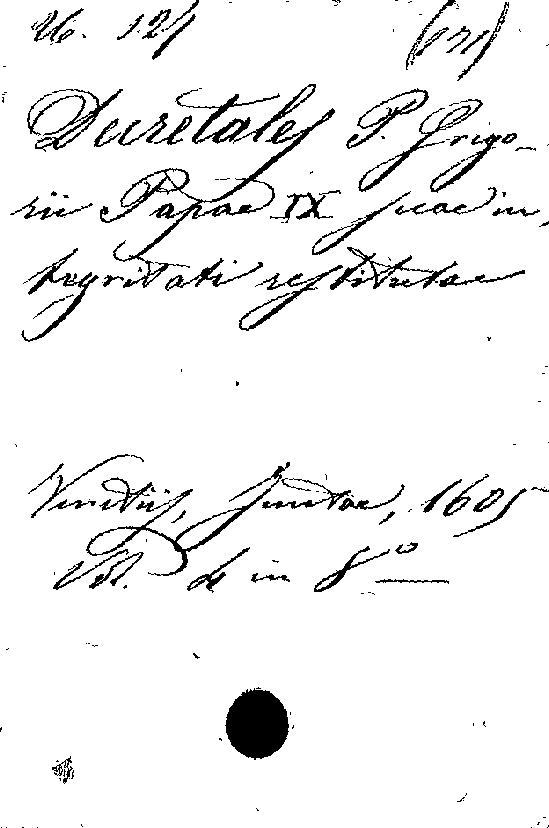 U. 121 (171)
Decretales P. Grigo-
rii Papae IX suae in,
tegritati restitutae
Venetiis, Juntae, 1605
Vol. 4 in 8º